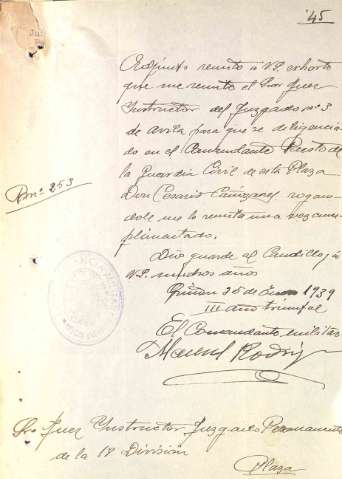 45
Adjunto remito a V.S. exhorto
que me remite el Sr. Juez
Instructor del Juzgado nº 3
de Avila para que se diligencia
do en el Comandante Puesto de
la Guardia Civil de esta Plaza
Don Cesareo rogan
dole me lo remita una vez cum
plimentado.
Dios guarde al Caudillo y a
V.S. muchos años
Griñon 25 de Enero 1939
III año triunfal
El Comandante militar
Manuel
nº 253
Sr. Juez Instructor Juzgado Permanente
de la División
Plaza